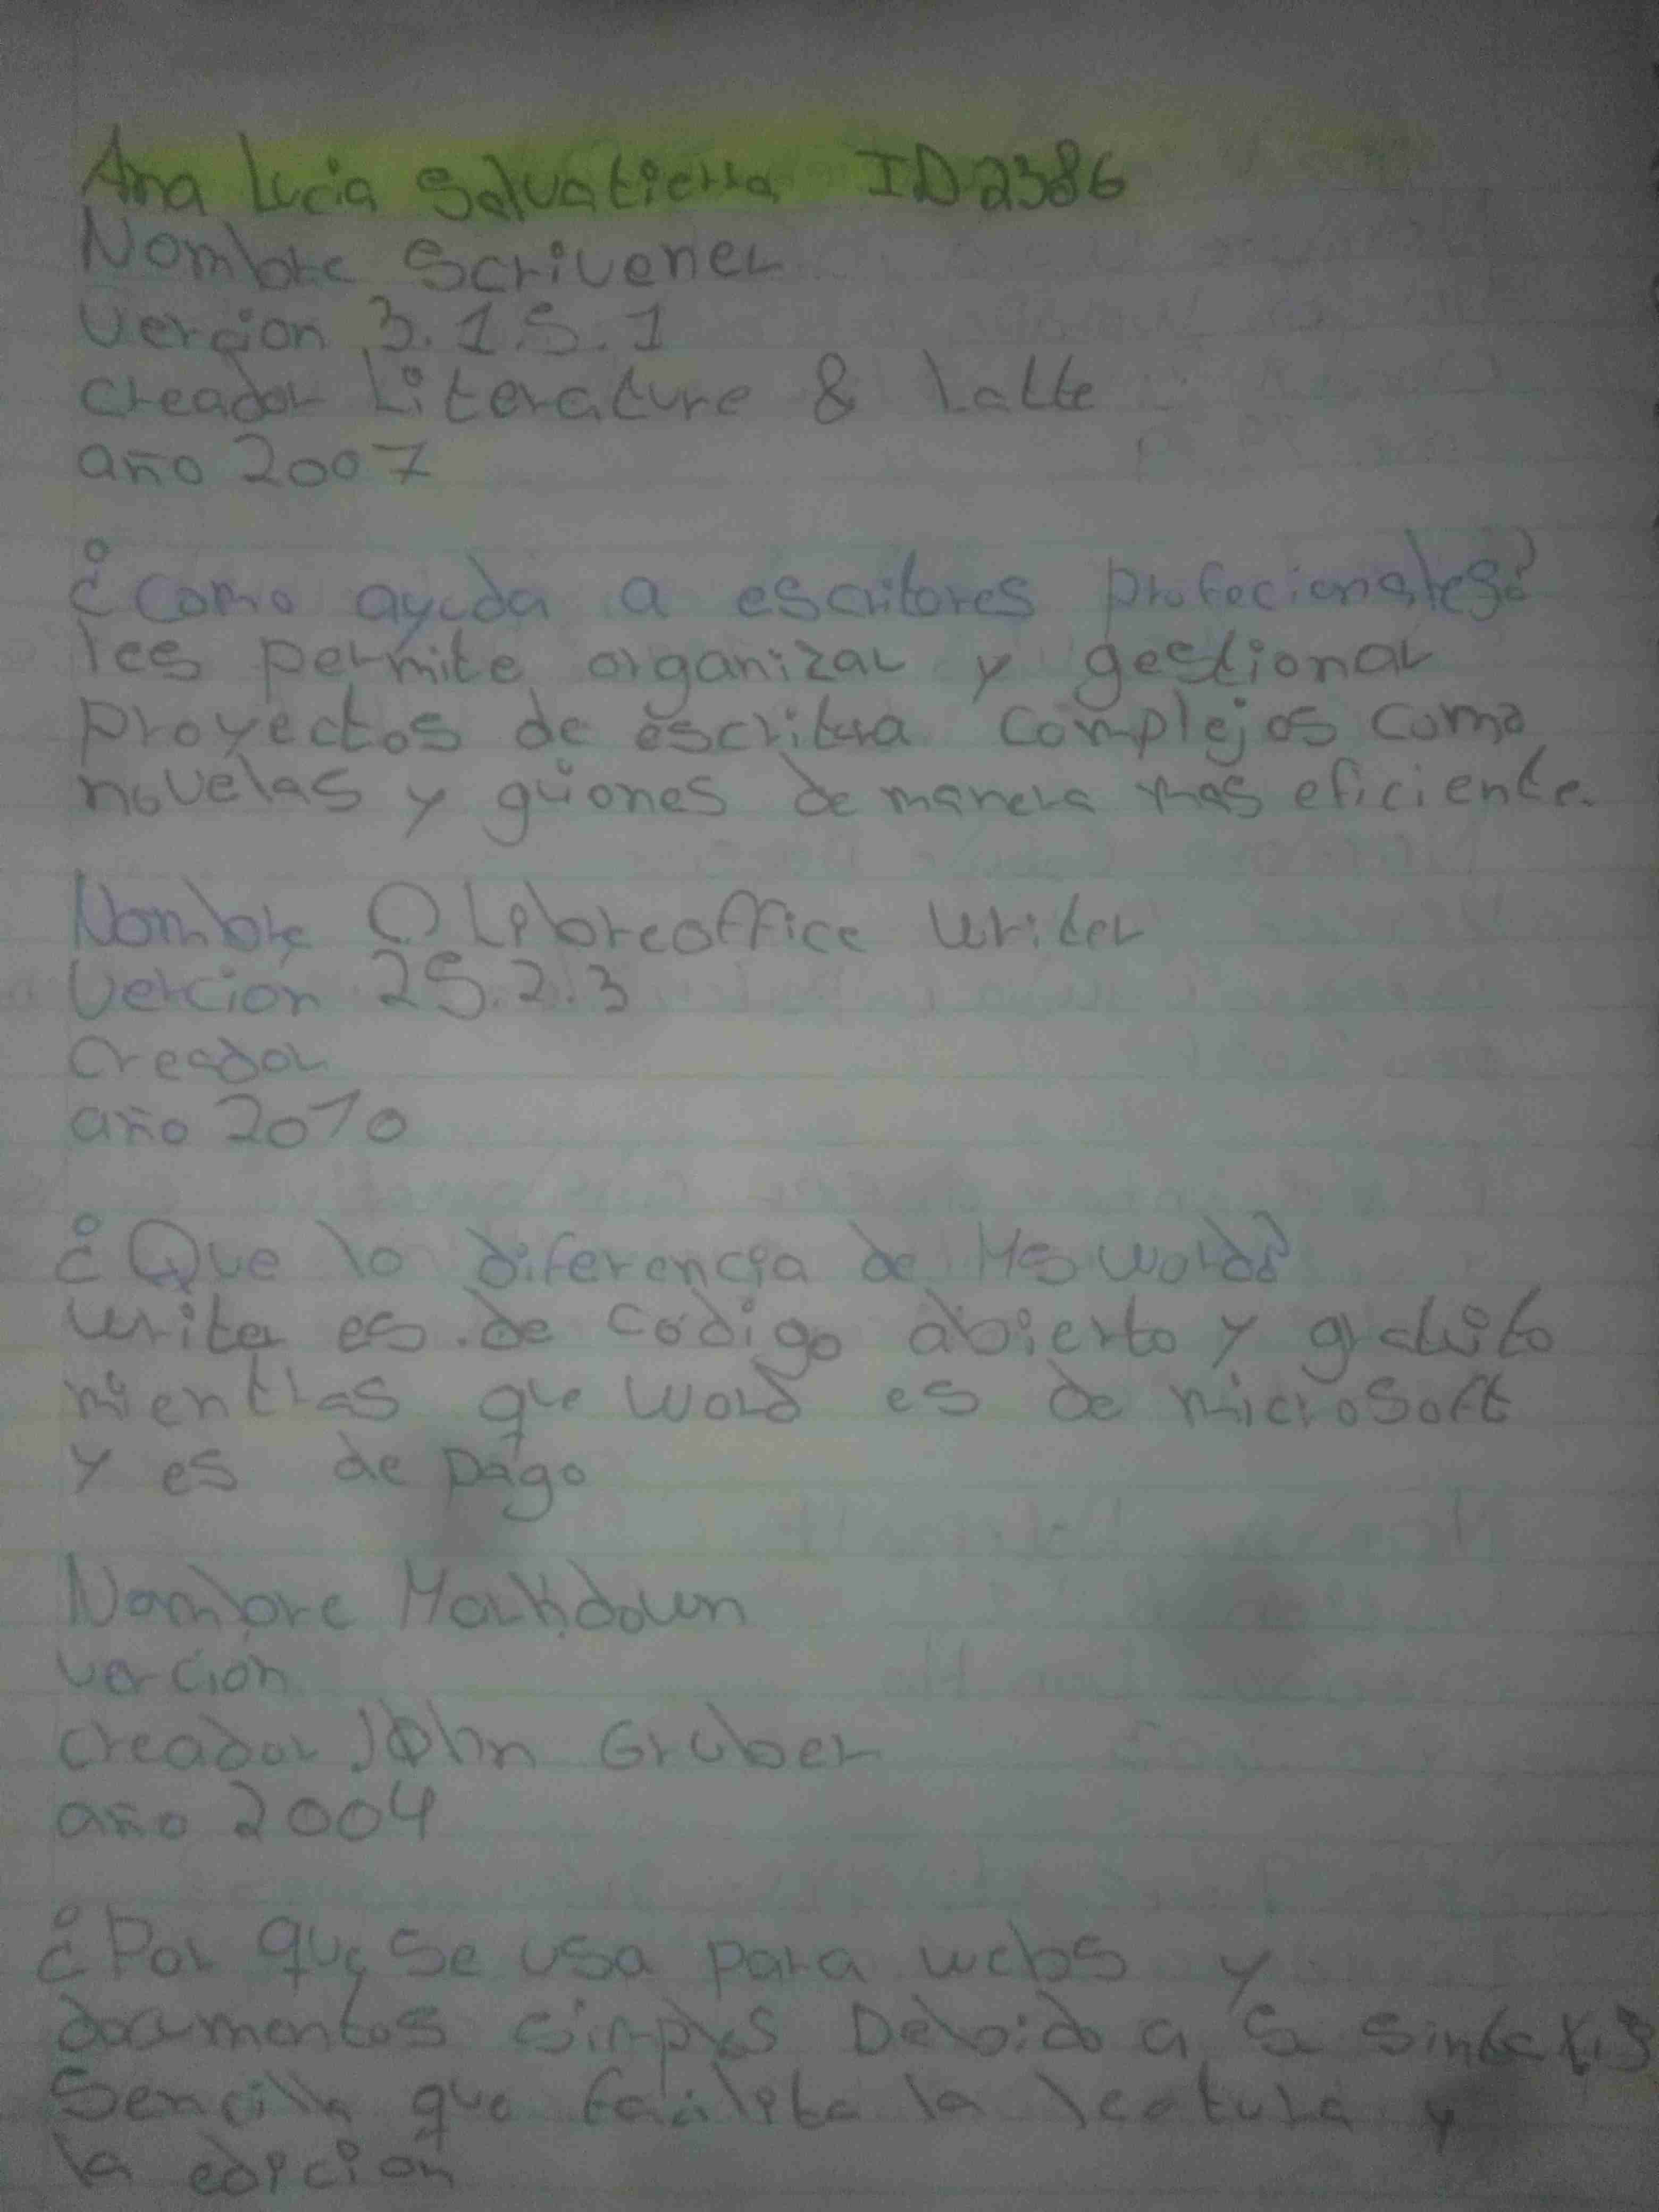 Ana Lucia Salvatierra ID2386
Nombre Scrivener
Vercion 3.1.5.1
Creador Literature & Latte
año 2007
¿Como ayuda a escritores profecionales?
les permite organizar y gestionar
proyectos de escritura complejos como
novelas y guiones de manera mas eficiente.
Nombre Libreoffice Writer
Vercion 25.2.3
Creador
año 2010
¿Que lo diferencia de MS Word?
Writer es de codigo abierto y gratuito
mientras que Word es de microsoft
y es de pago
Nombre Markdown
vercion
creador John Gruber
año 2004
¿Por que se usa para webs y
documentos simples Debido a su sintaxis
Sencilla que facilita la lectura y
la edicion